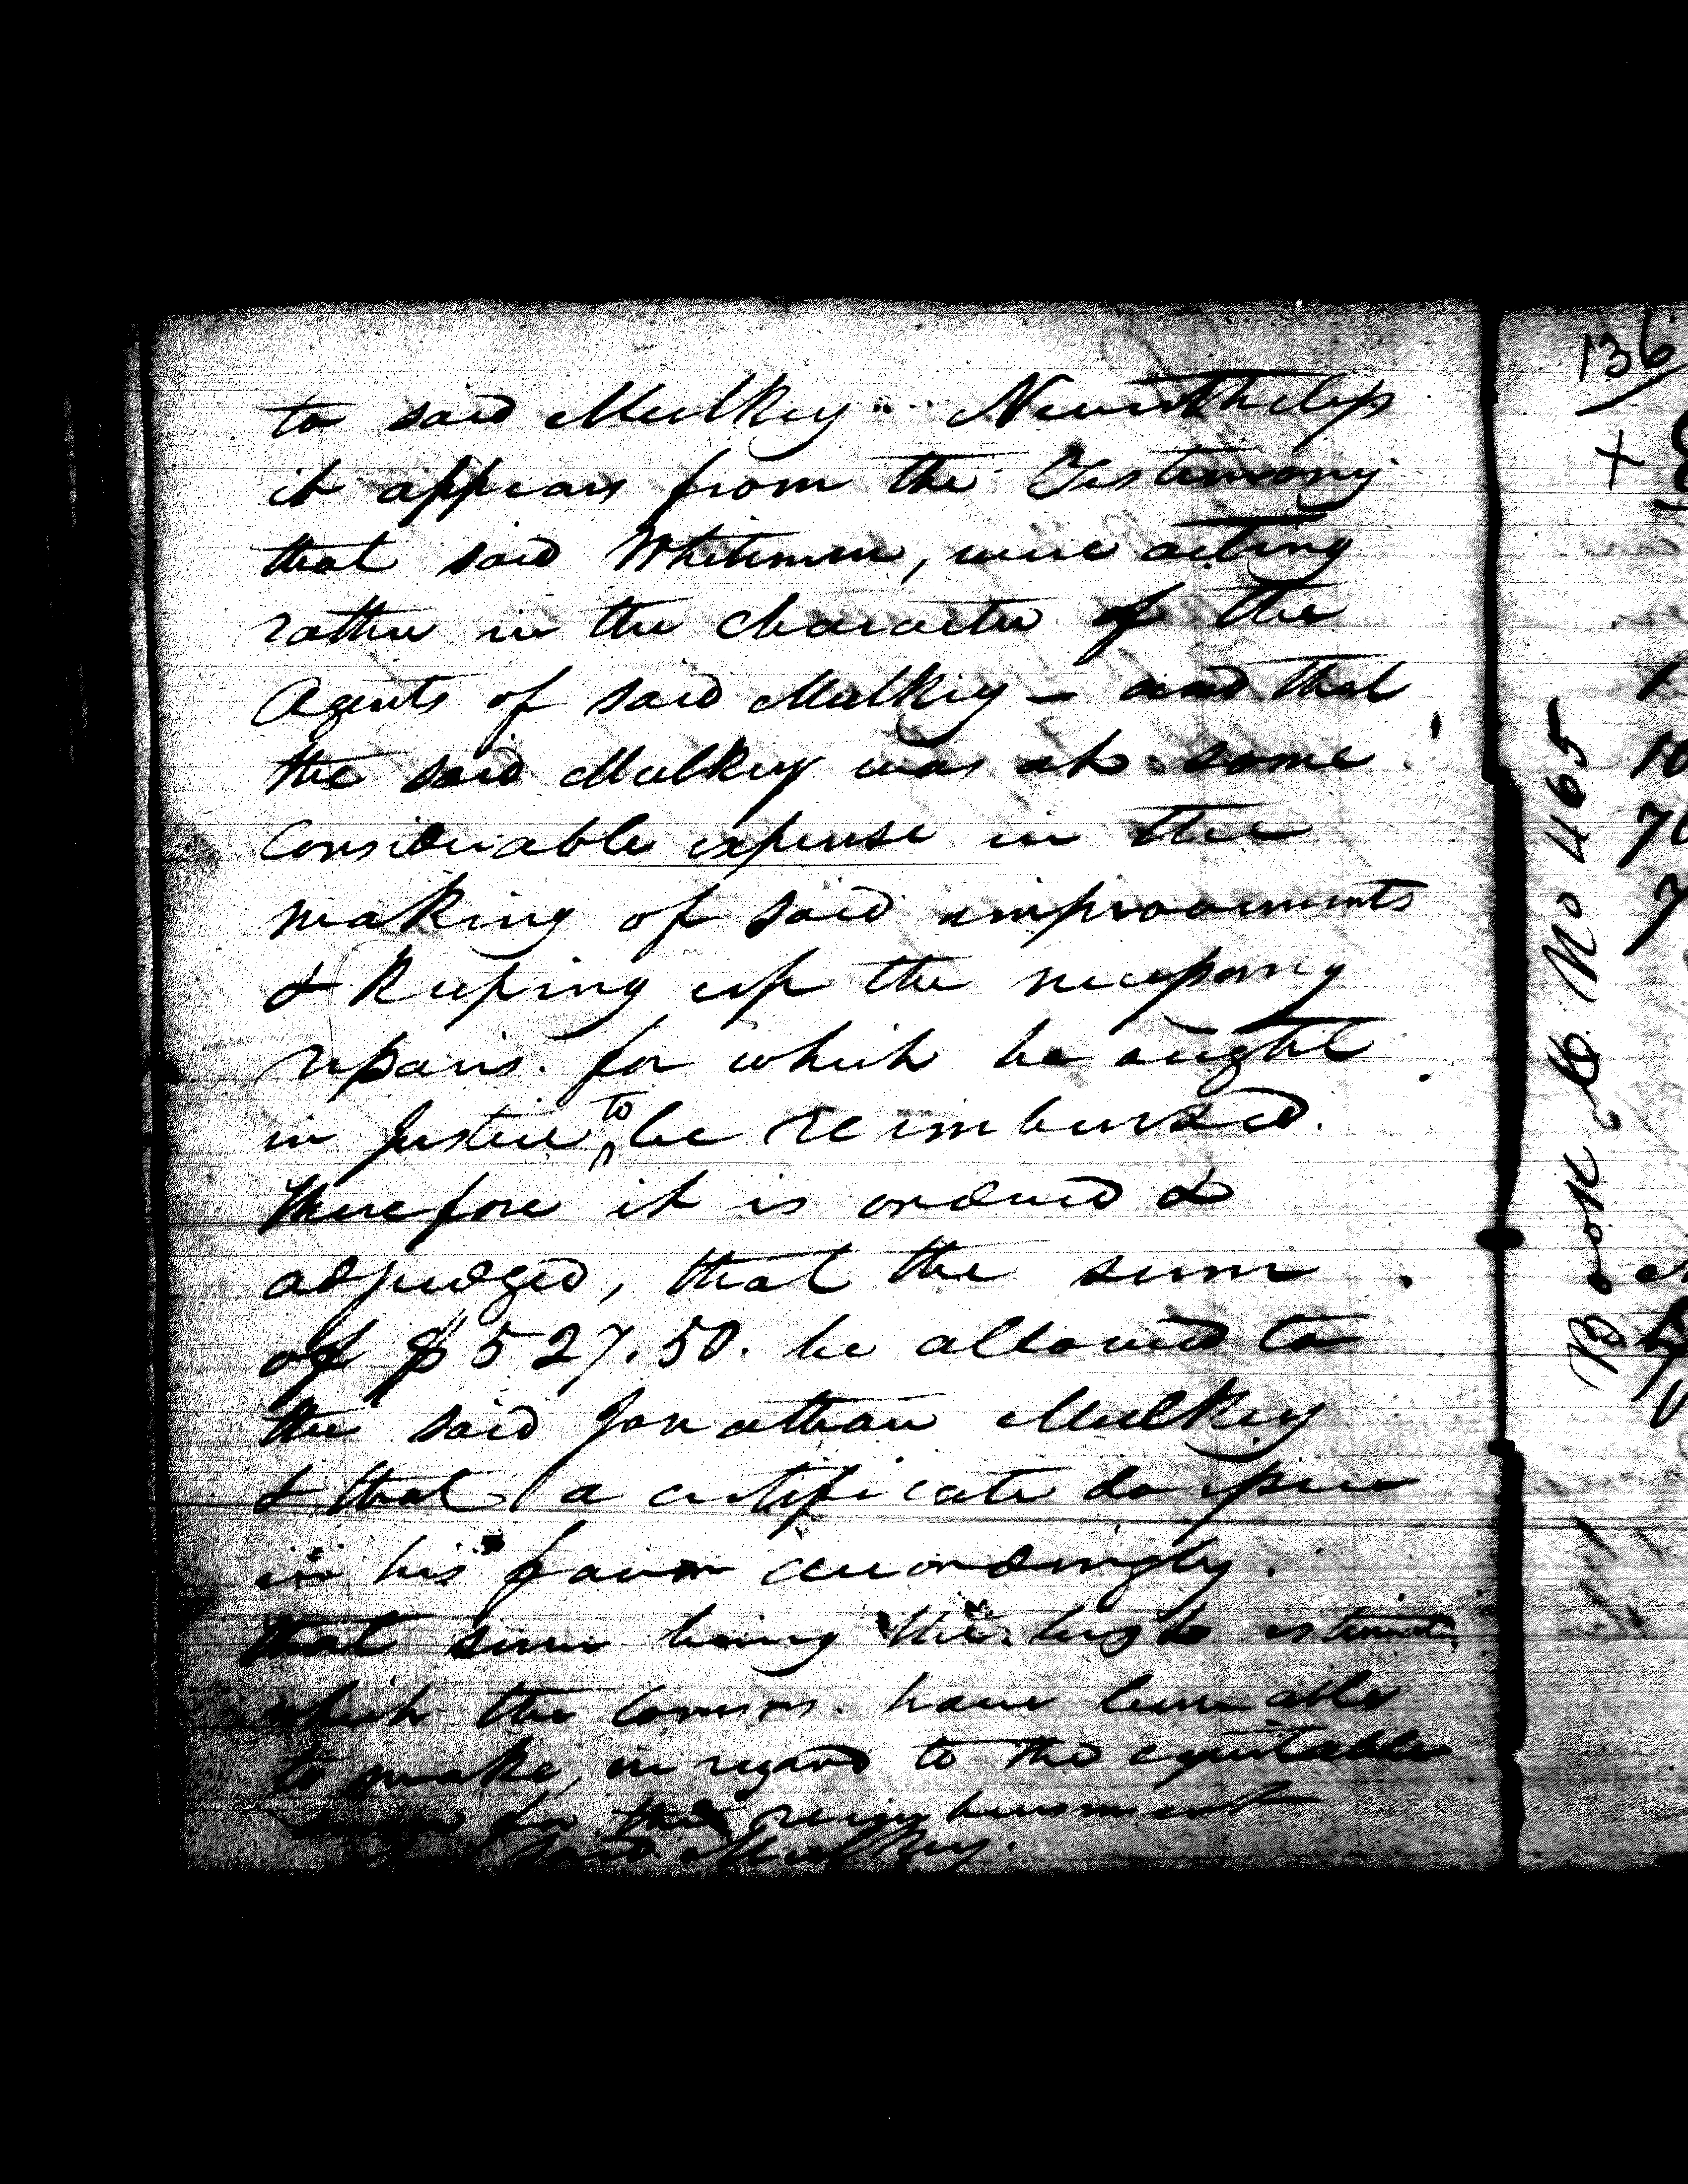 to said Mulkey. Nevertheless
it appears from the Testimony
that said Whitemen, were acting
rather in the character of the
Agents of said Mulkey – and that
the said Mulkey was at some
considerable expense in the
making of said improovements
& keeping up the necessary
repairs. for which he ought
in Justice to be reimbursed.
Therefore it is ordered &
adjudged, that the sum
of $527.50. be allowed to
the said Jonathan Mulkey
& that a certificate do issue
in his favor accordingly.
That sum being the best estimate
which the Commrs. have been able
to make, in regard to the equitable
for the reimbursment
said Mulkey.
136
+
10
7
Book No 465